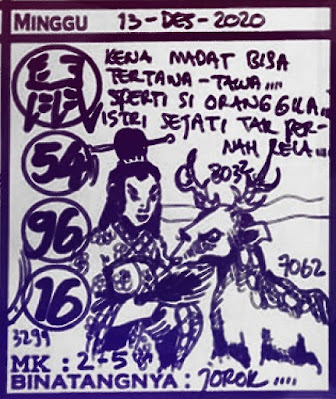 MINGGU 13-DES-2020
KENA MADAT BISA
TERTAWA-TAWA....
SPERTI SI ORANG GILA...
ISTRI SEJATI TAK PER-
NAH RELA....
54
96
7062
16
3299
MK : 2-5
BINATANGNYA : JOROK ....